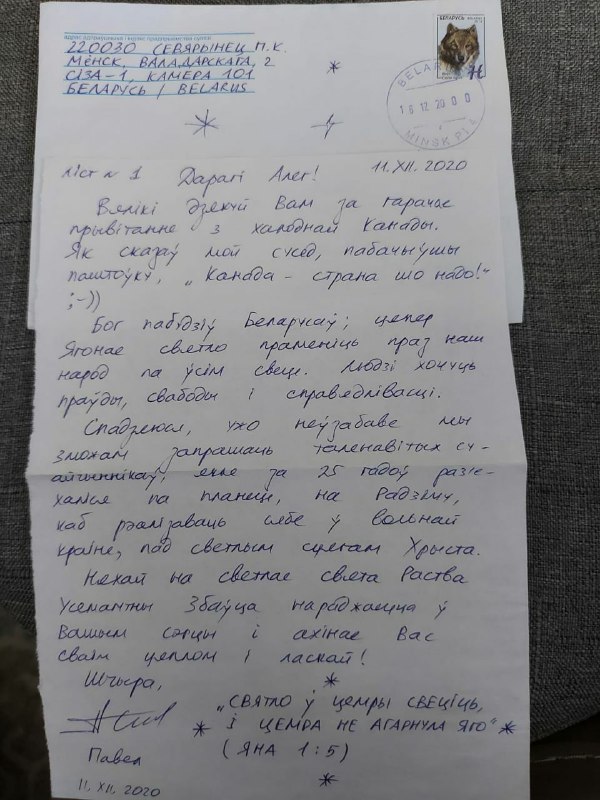 адрас адпраўшчыка і індэкс прадпрыемства сувязі
220030 СЕВЯРЫНЕЦ П.К.
МЕНСК, ВАЛАДАРСКАГА, 2
СІЗА-1, КАМЕРА 101
БЕЛАРУСЬ / BELARUS
БЕЛАРУСЬ BELARUS
H
BELARUS
16 12 20 0 0
MINSK PI 4
Ліст n 1 Дарагі Алег! 11.XII.2020
Вялікі дзякуй Вам за гарачае
прывітанне з халоднай Канады.
Як сказаў мой сусед, пабачыўшы
паштоўку, „Канада - страна шо надо!"
;-))
Бог пабудзіў Беларусаў; цяпер
Ягонае святло праменіць праз наш
народ па ўсім свеце. Людзі хочуць
праўды, свабоды і справядлівасці.
Спадзяюся, ужо неўзабаве мы
зможам запрашаць таленавітых су-
айчыннікаў, якія за 25 гадоў раз'е-
халіся па планеце, на Радзіму,
каб рэалізаваць сябе ў вольнай
краіне, пад светлым сцягам Хрыста.
Няхай на светлае свята Раства
Усемагутны Збаўца народжаецца ў
Вашым сэрцы і ахінае Вас
сваім цяплом і ласкай!
Шчыра,
„СВЯТЛО Ў ЦЕМРЫ СВЕЦІЦЬ,
І ЦЕМРА НЕ АГАРНУЛА ЯГО"
(ЯНА 1:5)
Павел
11.XII.2020